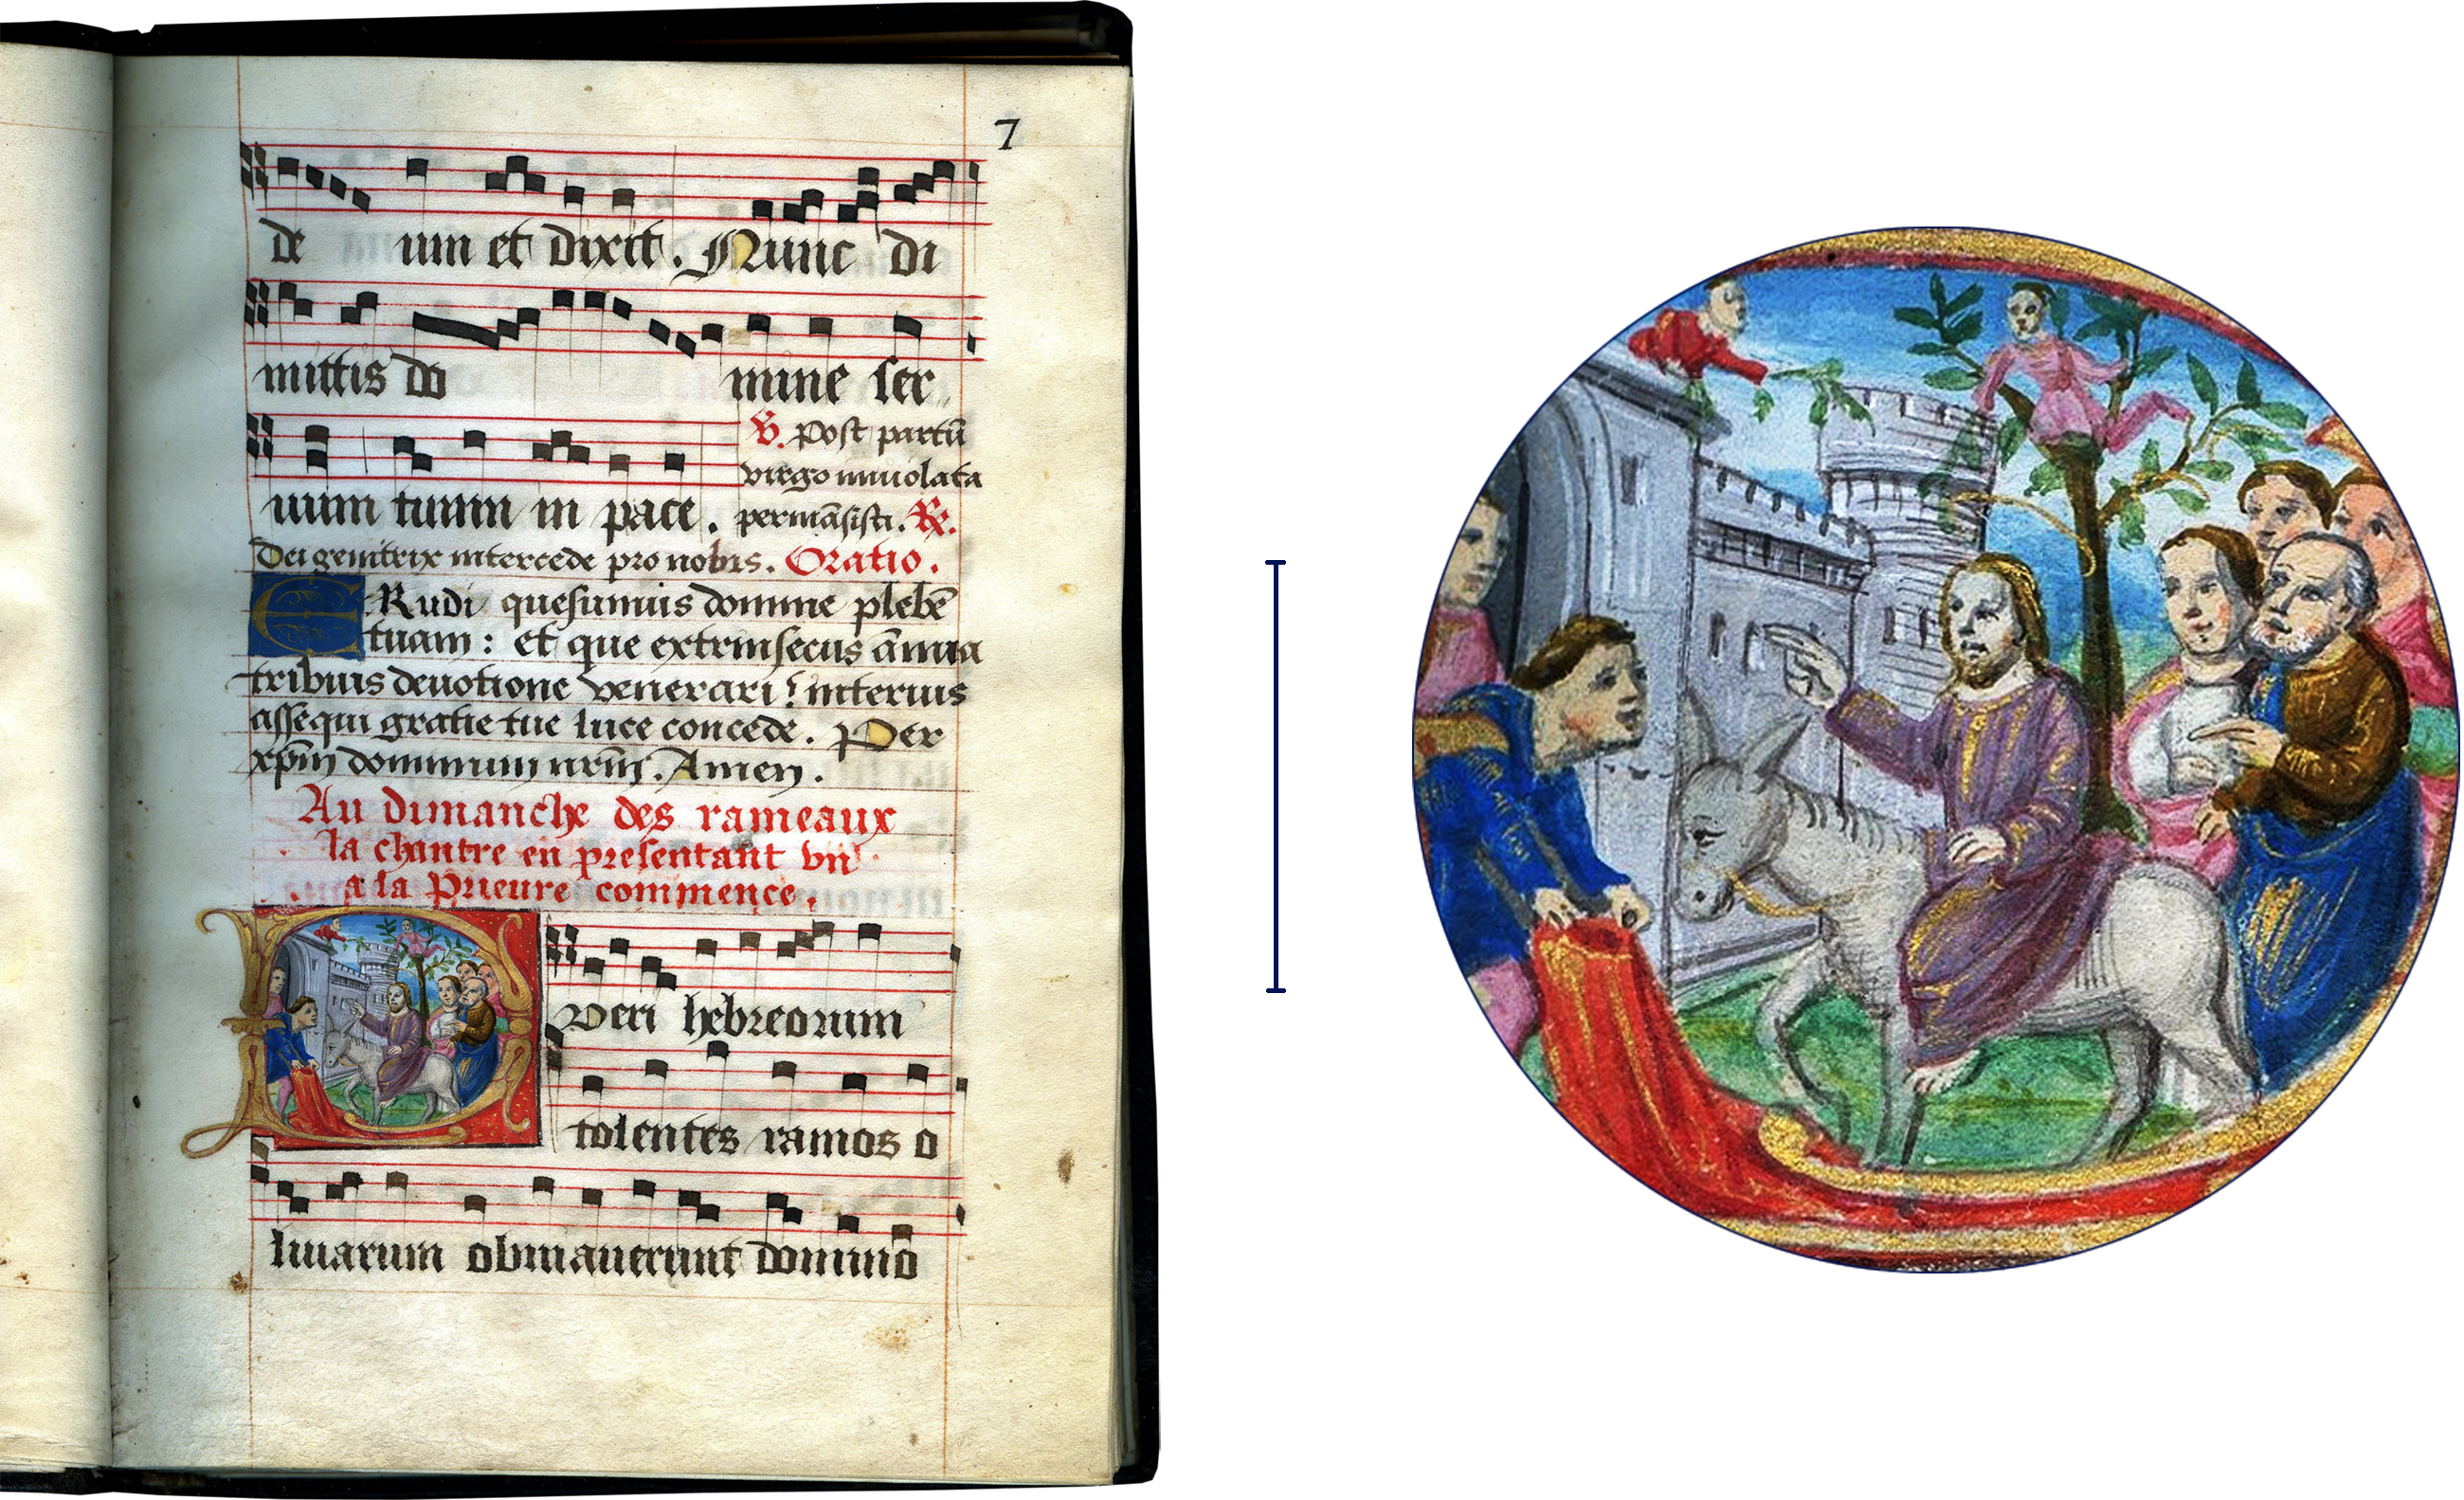 7
de um et dixit. Nunc di
mittis do mine ser
uum tuum in pace.
℣. Post partū
virgo inuiolata
permāsisti. ℟.
Dei genitrix intercede pro nobis. Oratio.
ERudi quesumus domine plebē
tuam : et que extrinsecus ānua
tribuis deuotione venerari : interius
assequi gratie tue luce concede. Per
xp̄m dominum nr̄m. Amen.
Au dimanche des rameaux
la chantre en presentant vn
a la Prieure commence.
Pueri hebreorum
tolentes ramos o
liuarum obuiauerunt domino